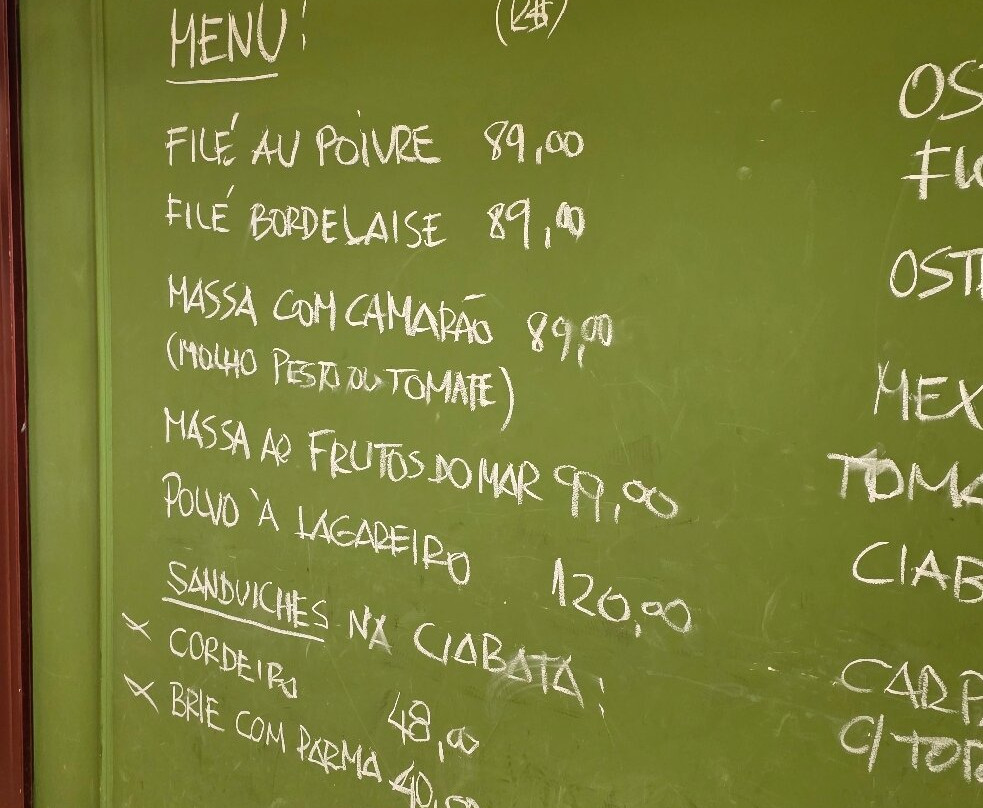 MENU! (R$)
FILÉ AU POIVRE 89,00
FILÉ BORDELAISE 89,00
MASSA COM CAMARÃO 89,00
(MOLHO PESTO OU TOMATE)
MASSA AO FRUTOS DO MAR 99,00
POLVO À LAGAREIRO 120,00
SANDUICHES NA CIABATA:
X CORDEIRO 48,00
X BRIE COM PARMA 40,00
OS
FLO
OST
MEX
TOMA
CIAB
CARP
C/ TOR